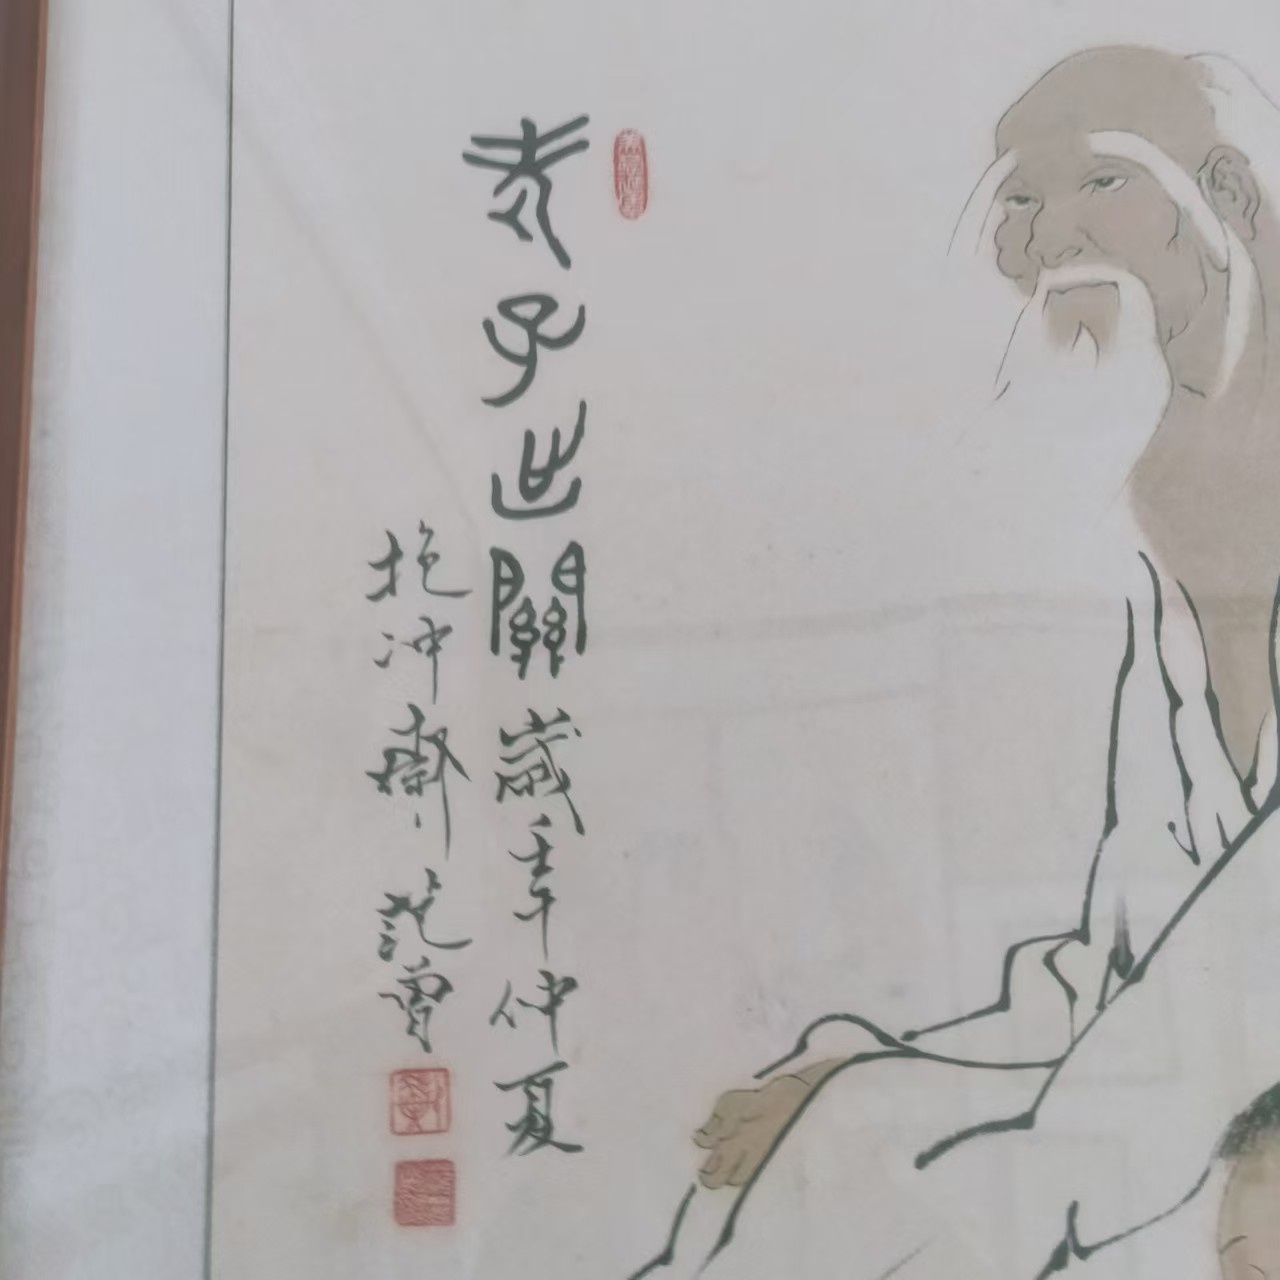 老子出關歲壬午仲夏
抱冲齋范曾